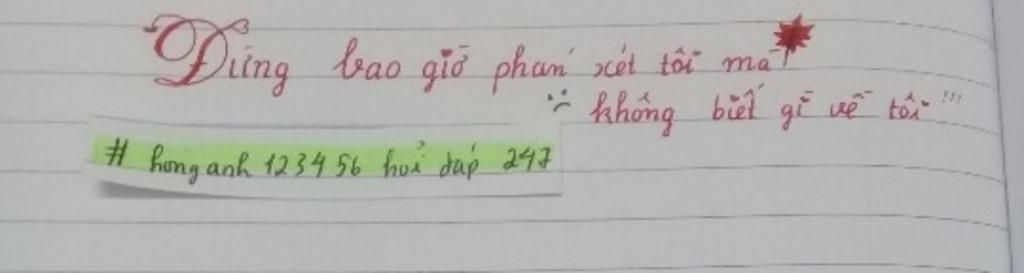 Đừng bao giờ phán xét tôi mà
không biết gì về tôi !!!
# honganh 123456 hỏi đáp 247